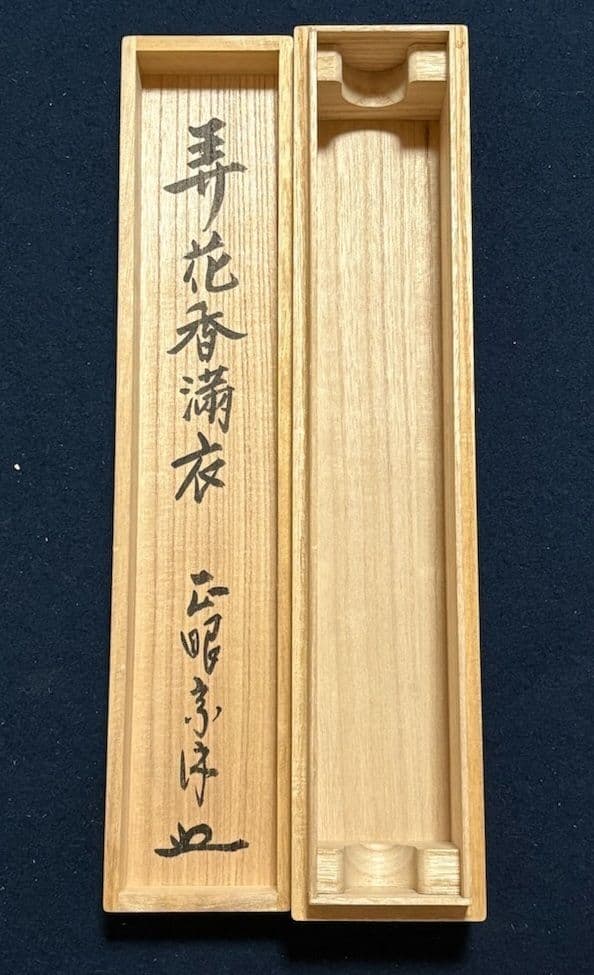 弄花香満衣
正眼宗